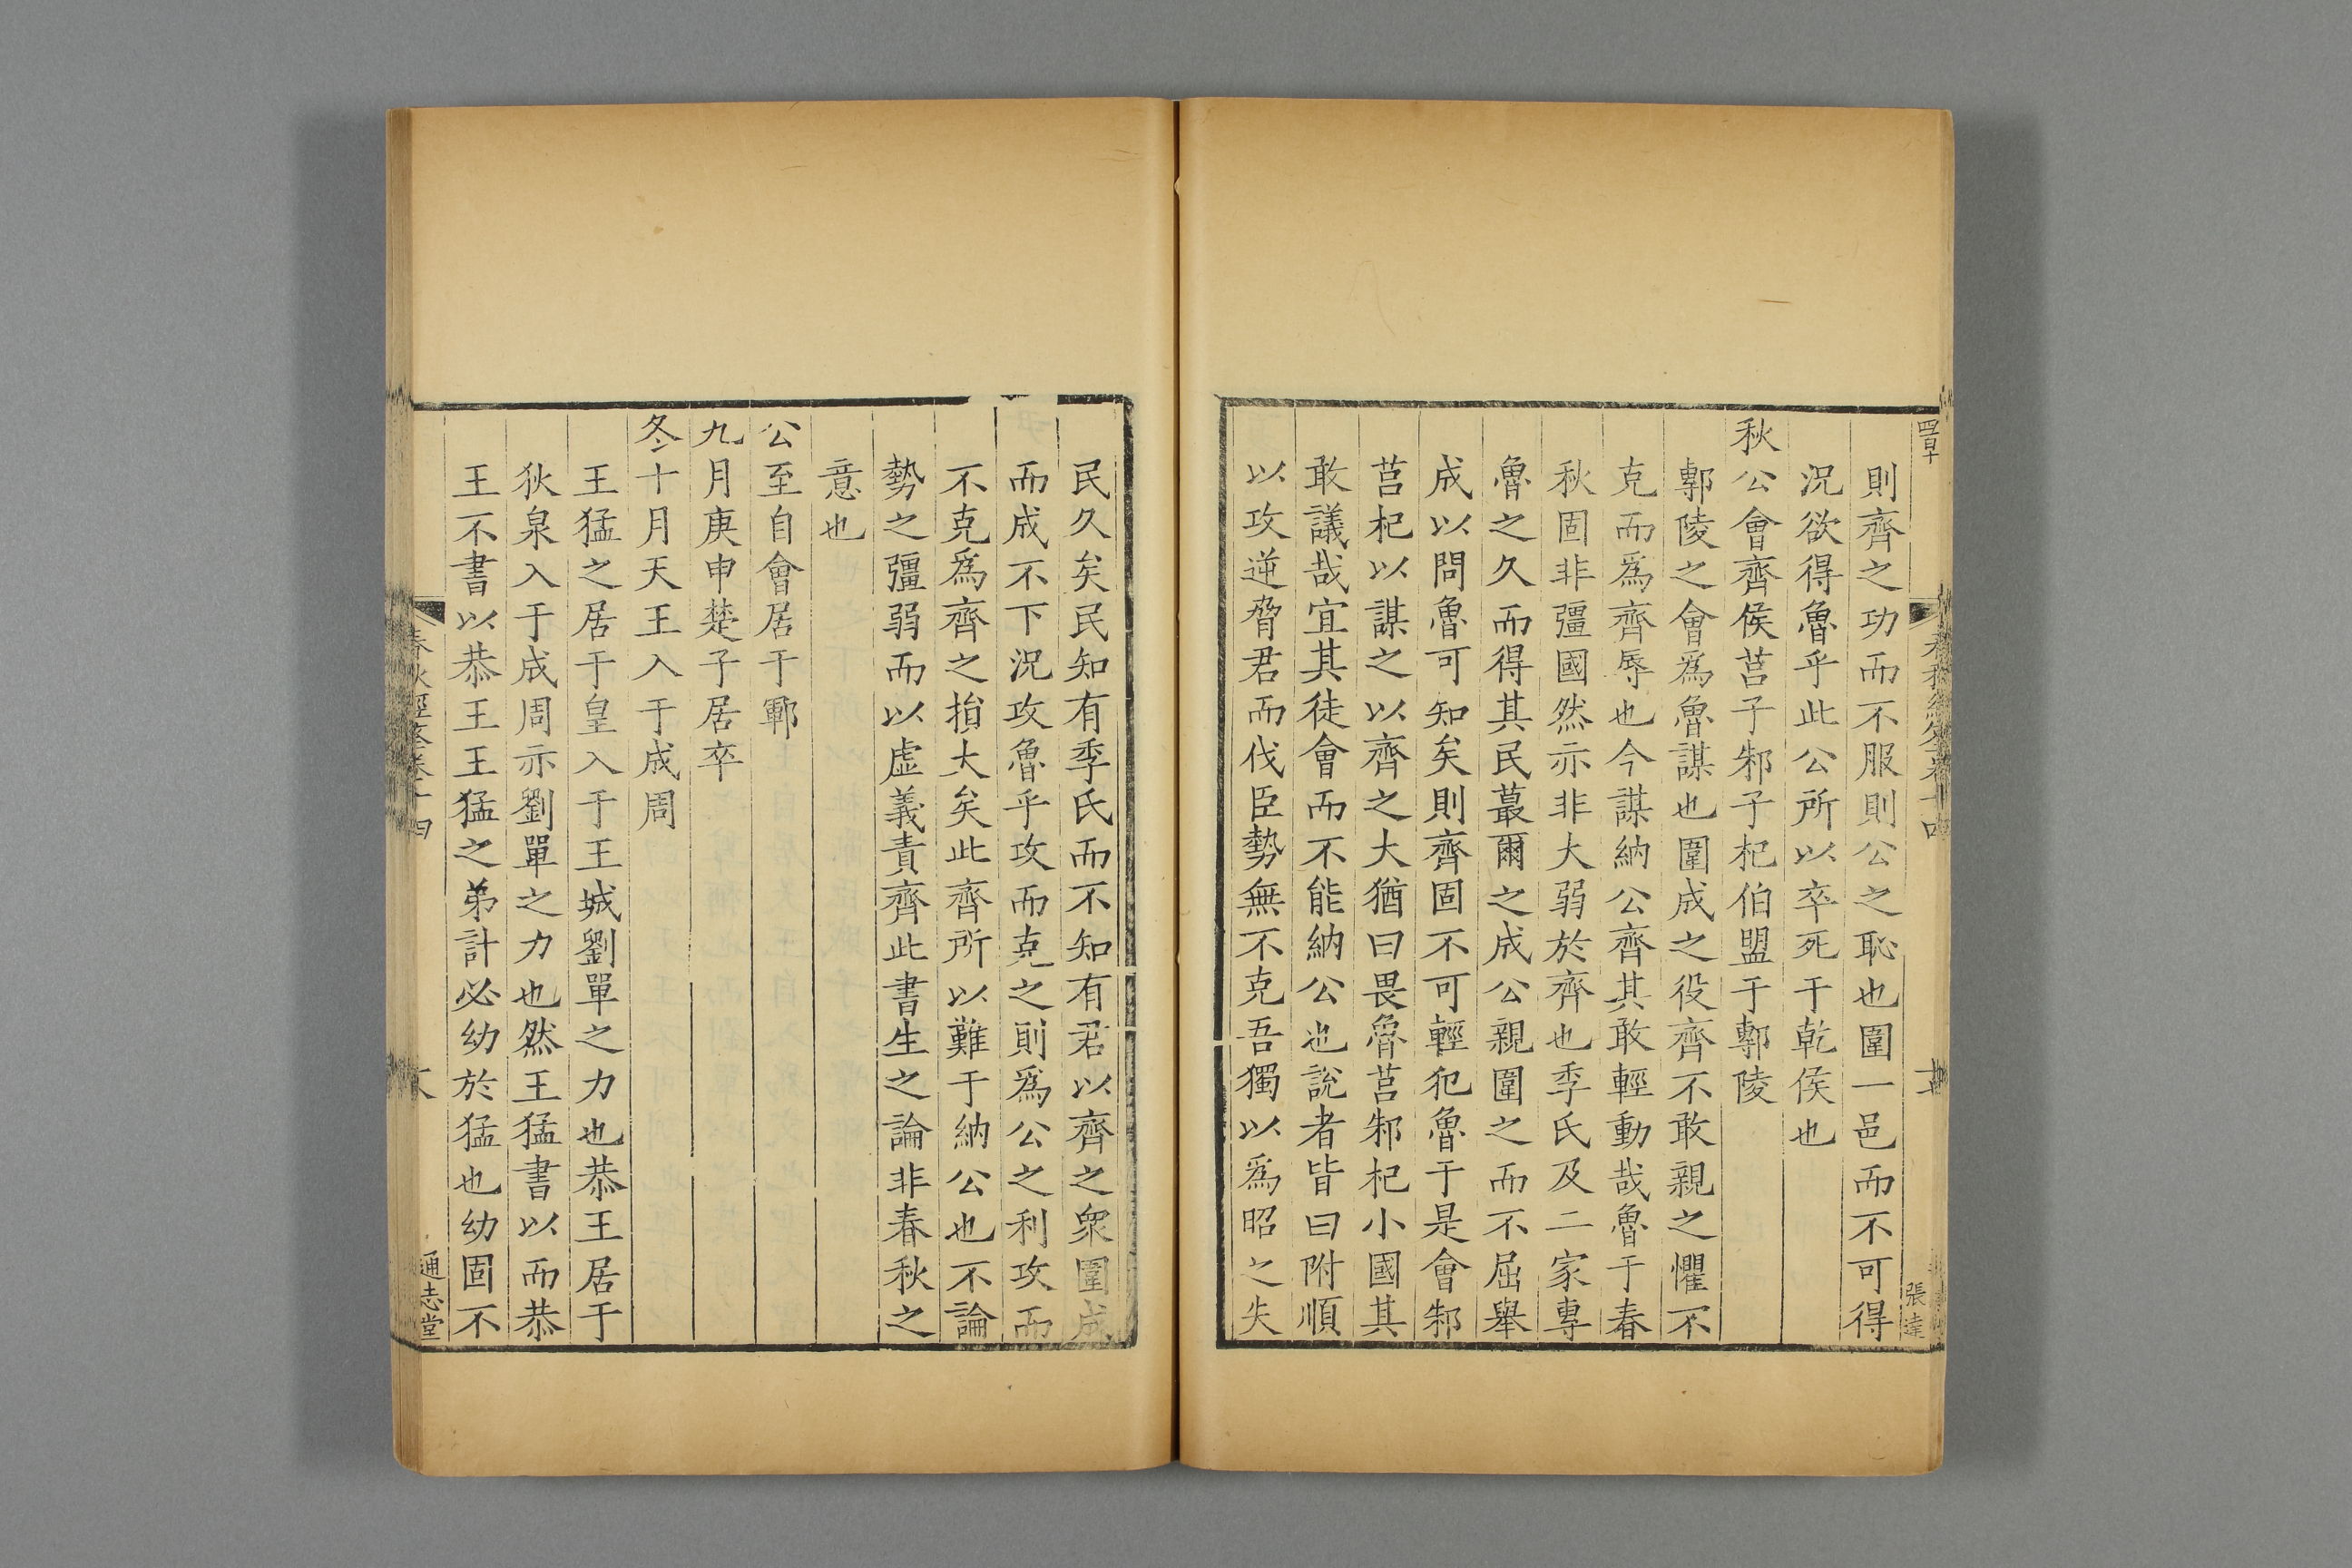 則齊之功而不服則公之恥也圍一邑而不可得
況欲得魯乎此公所以卒死于乾侯也
秋公會齊侯莒子邾子杞伯盟于鄟陵
鄟陵之會爲魯謀也圍成之役齊不敢親之懼不
克而爲齊辱也今謀納公齊其敢輕動哉魯于春
秋固非彊國然亦非大弱於齊也季氏及二家專
魯之久而得其民蕞爾之成公親圍之而不屈舉
成以問魯可知矣則齊固不可輕犯魯于是會邾
莒杞以謀之以齊之大猶曰畏魯莒邾杞小國其
敢議哉宜其徒會而不能納公也說者皆曰附順
以攻逆脅君而伐臣勢無不克吾獨以爲昭之失
民久矣民知有季氏而不知有君以齊之衆圍成
而成不下況攻魯乎攻而克之則爲公之利攻而
不克爲齊之損大矣此齊所以難于納公也不論
勢之彊弱而以虛義責齊此書生之論非春秋之
意也
公至自會居于鄆
九月庚申楚子居卒
冬十月天王入于成周
王猛之居于皇入于王城劉單之力也恭王居于
狄泉入于成周亦劉單之力也然王猛書以而恭
王不書以恭王王猛之弟計必幼於猛也幼固不
春秋經筌卷十四
通志堂
張達